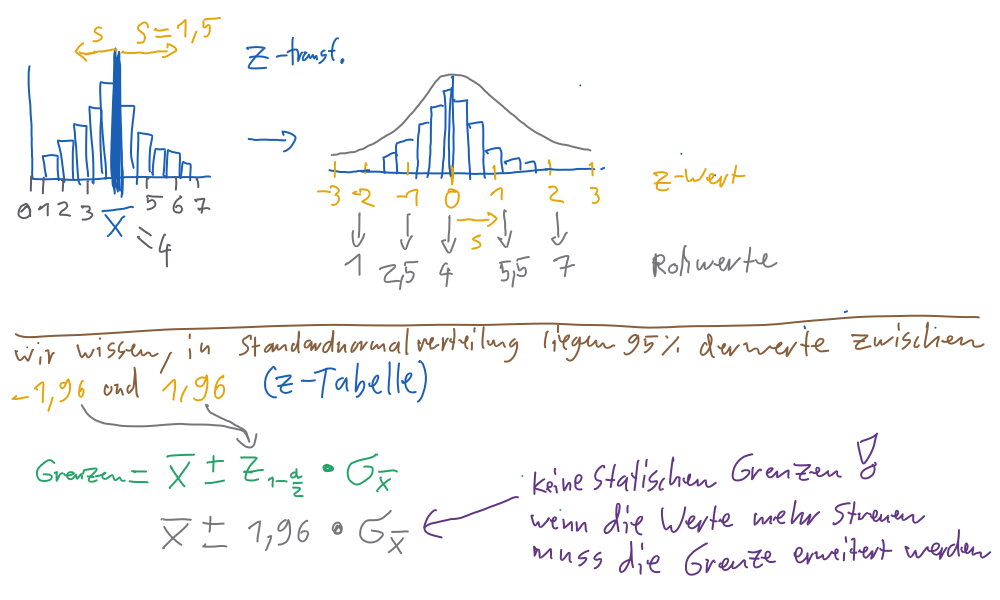 s S=1,5
z-transf.
0 1 2 3 x̅ 5 6 7
=4
-3 -2 -1 0 1 2 3 z-Wert
s
1 2,5 4 5,5 7 Rohwerte
wir wissen, in Standardnormalverteilung liegen 95% der werte zwischen
-1,96 und 1,96 (z-Tabelle)
Grenzen = x̅ ± z₁₋α/₂ • σx̅
x̅ ± 1,96 • σx̅
keine statischen Grenzen!
wenn die Werte mehr streuen
muss die Grenze erweitert werden